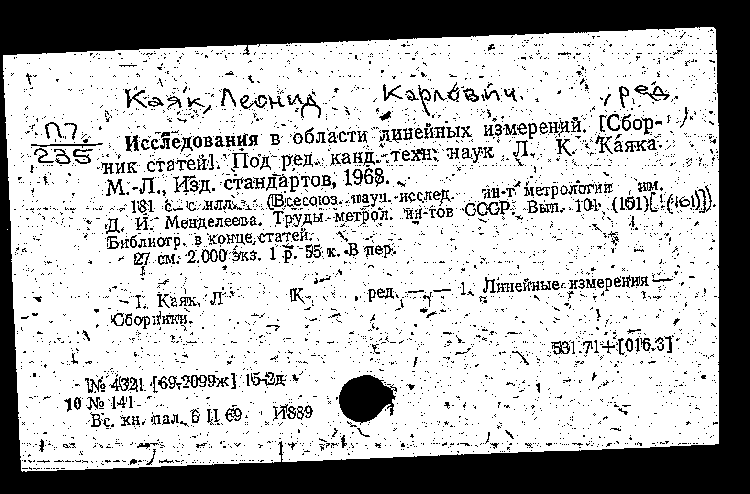 Каяк, Леонид Карлович, ред.
П7
235
Исследования в области линейных измерений. [Сбор-
ник статей]. Под ред. канд. техн. наук Л. К. Каяка.
М.-Л., Изд. стандартов, 1968.
181 с. с илл. (Всесоюз. науч.-исслед. ин-т метрологии им.
Д. И. Менделеева. Труды метрол. ин-тов СССР. Вып. 101 (161)).
Библиогр. в конце статей.
27 см. 2.000 экз. 1 р. 55 к. В пер.
I. Каяк, Л К , ред. — — 1. Линейные измерения —
Сборники.
531.71+[016.3]
№ 4321 [69-2099ж] 15-2д
10 № 141
Вс. кн. пал. 6 II 69 И889